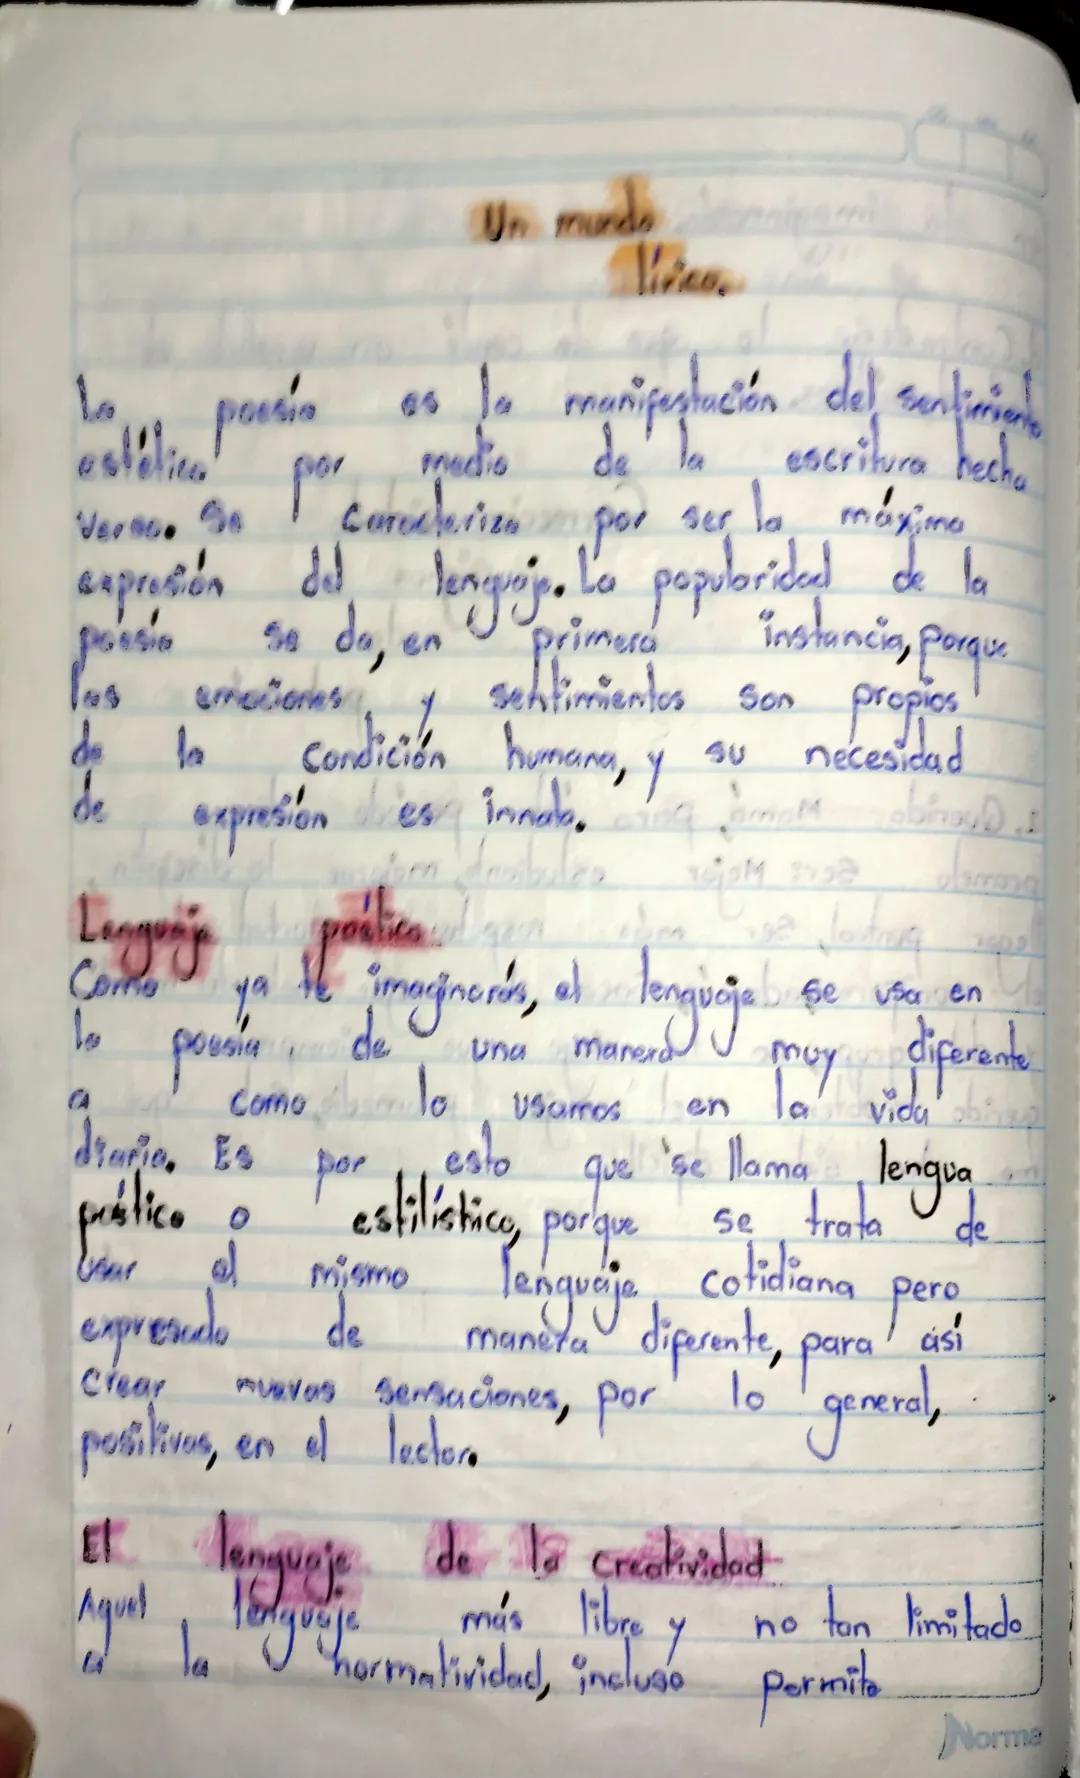 Un mundo
lírico.
La poesía es la manifestación del sentimiento
estético por medio de la escritura hecha
verso. Se caracteriza por ser la máxima
expresión del lenguaje. La popularidad de la
poesía se da, en primera instancia, porque
las emociones y sentimientos son propios
de la condición humana, y su necesidad
de expresión es innata.
Lenguaje poético
Como ya te imaginarás, el lenguaje se usa en
la poesía de una manera muy diferente
a como lo usamos en la vida
diaria. Es por esto que se llama lengua
poético o estilístico, porque se trata de
usar el mismo lenguaje cotidiana pero
expresado de manera diferente, para así
crear nuevas sensaciones, por lo general,
positivas, en el lector.
El lenguaje de la creatividad
Aquel lenguaje más libre y no tan limitado
a la normatividad, incluso permite
Norma